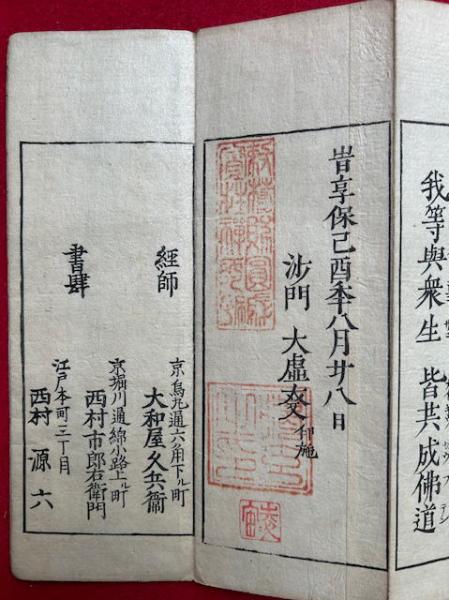 我等與衆生 皆共成佛道
旹享保己酉季八月廿八日
沙門 大虛 印施
經師
京烏丸通六角下ル町
大和屋久兵衞
書肆
京堀川通綿小路上ル町
西村市郎右衛門
江戸本町三丁目
西村源六